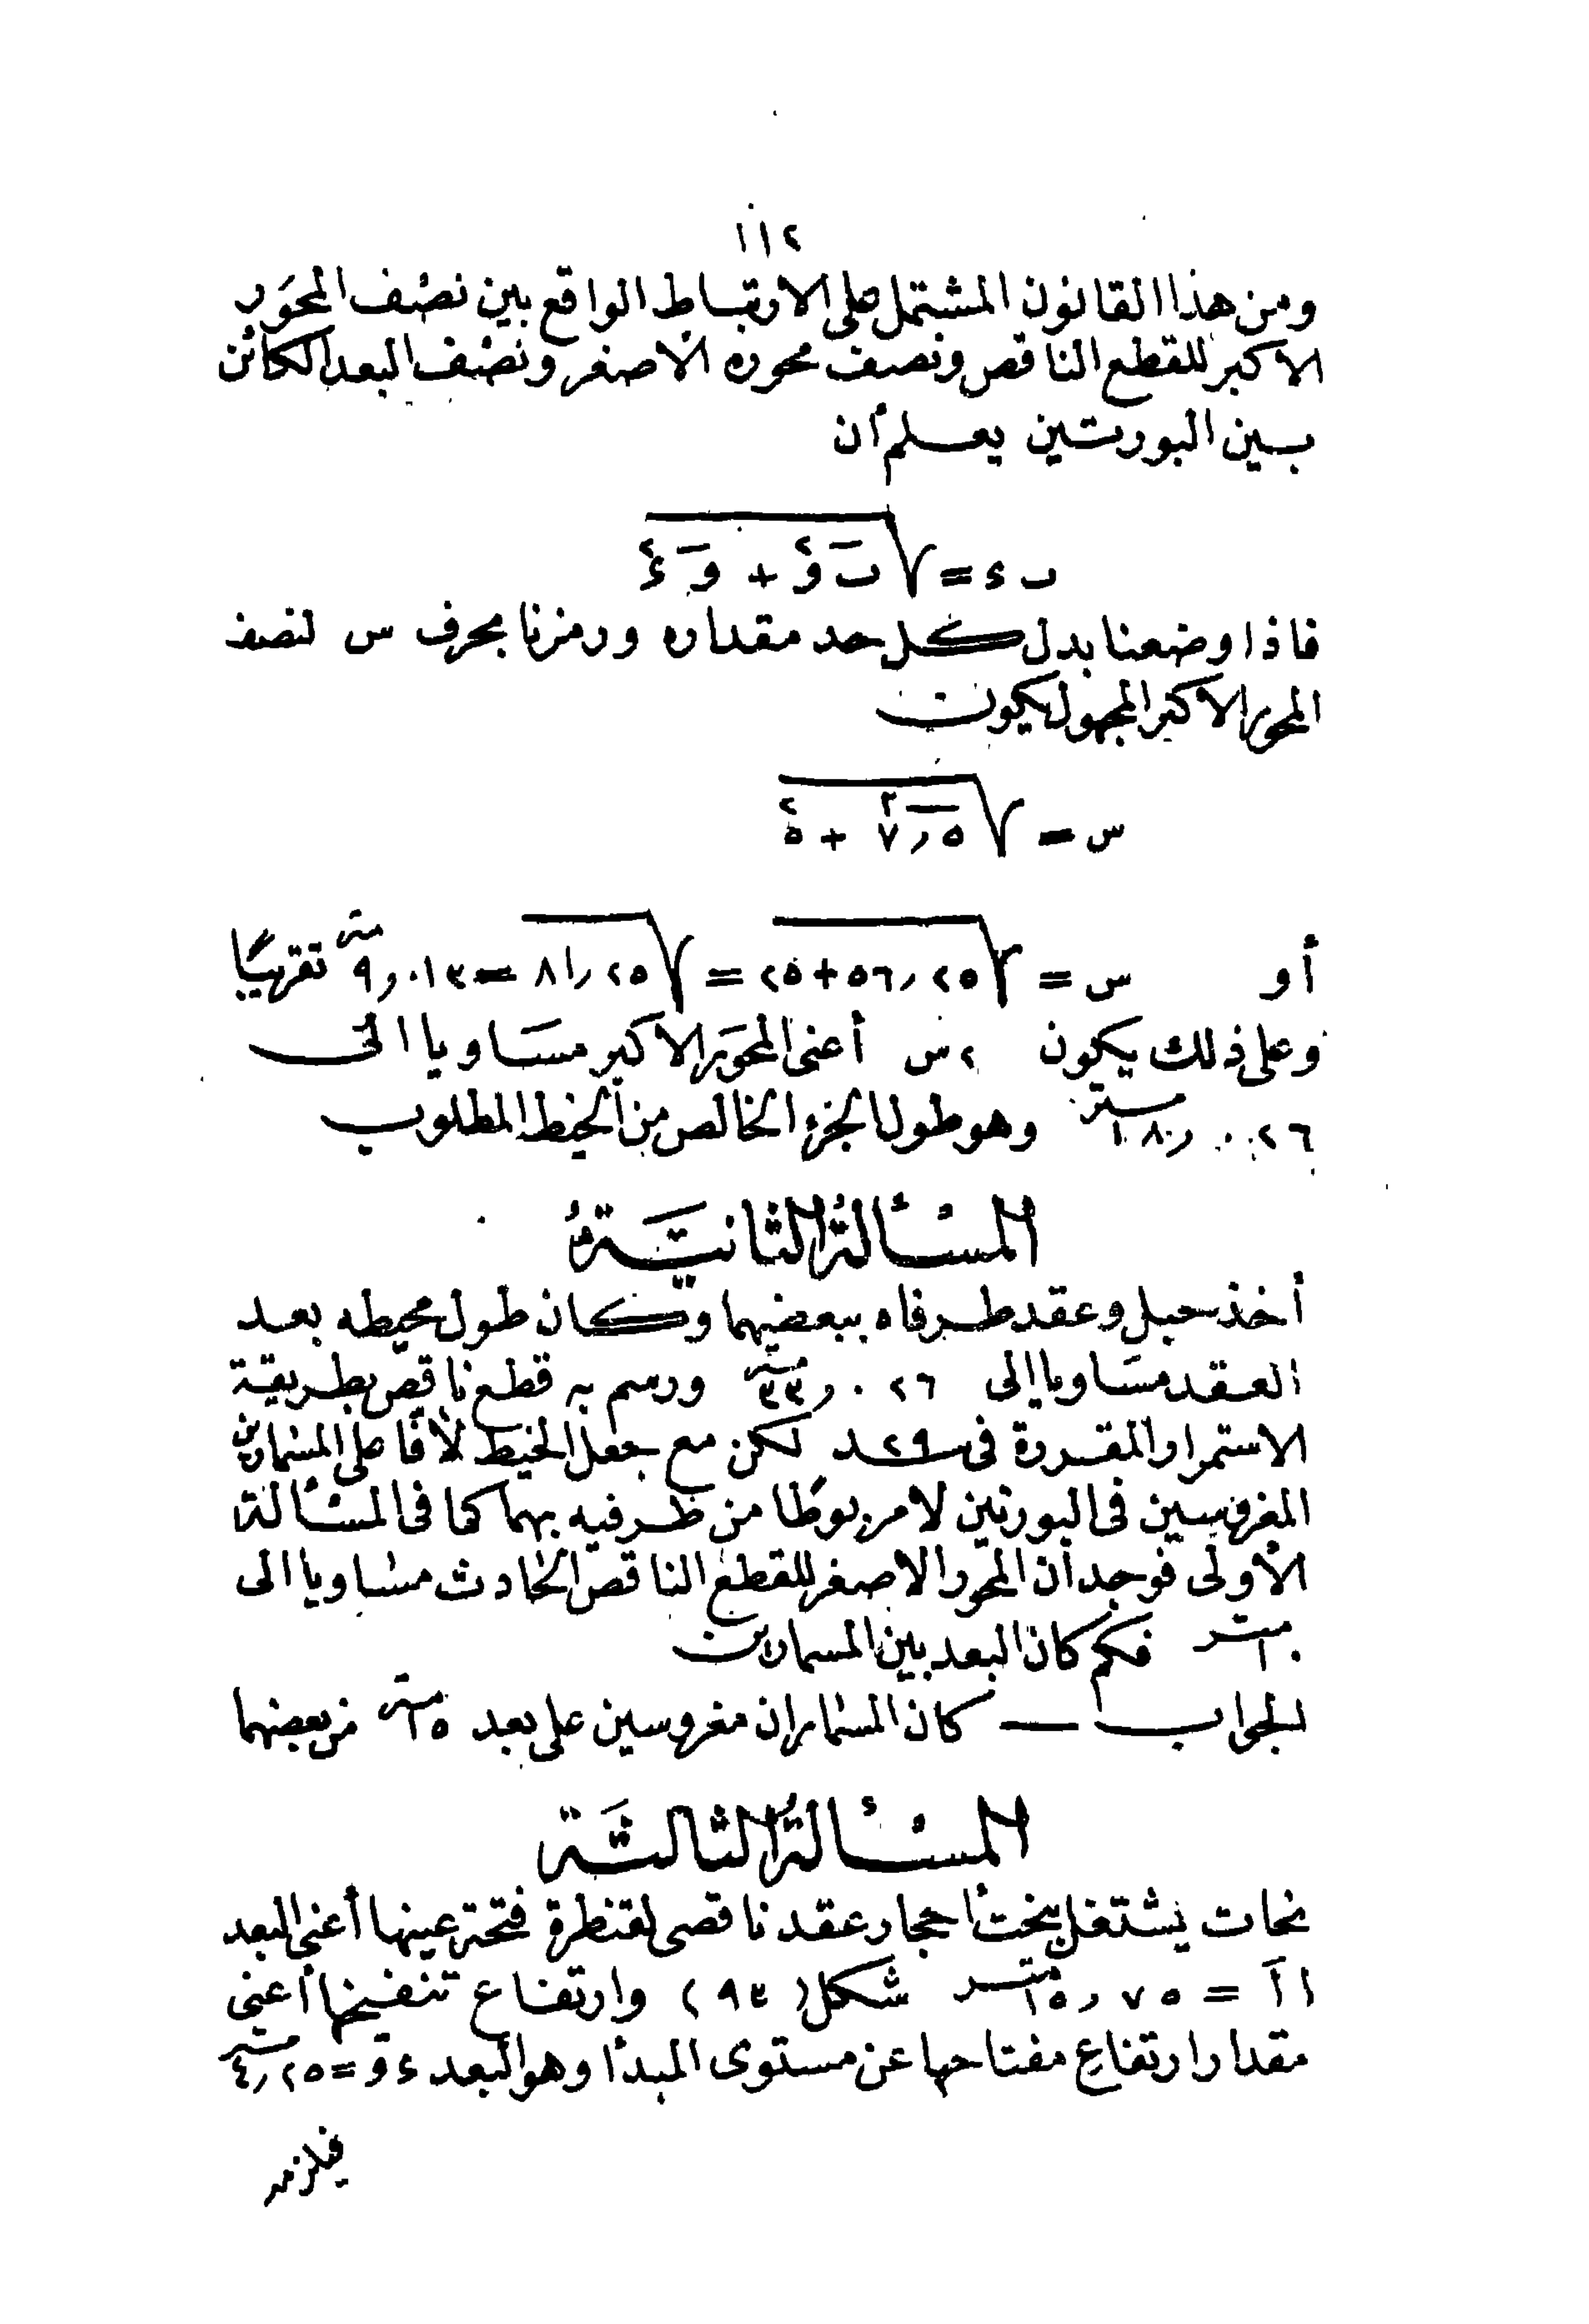 ١١٢
ومن هذا القانون المشتمل على الارتباط الواقع بين نصف المحور
الاكبر للقطع الناقص ونصف محوره الاصغر ونصف البعد الكائن
بين البورتين يعلم أن
ب ء = √ بَ و٢ + وَ ء٢
فاذا وضعنا بدل كل حد مقداره ورمزنا بحرف س لنصف
المحور الاكبر المجهول يكون
س = √ ٧٫٥٢ + ٥٢
أو س = √ ٥٦٫٢٥+٢٥ = √ ٨١٫٢٥ = ٩٫٠١٣ متر تقريبًا
وعلى ذلك يكون ٢س أعنى المحور الاكبر مساويا الى
١٨٫٠٢٦ متر وهو طول الجزء الخالص من الخيط المطلوب
المسألة الثانية
أخذ حبل وعقد طرفاه ببعضهما وكان طول محيطه بعد
العقد مساويا الى ٣٣٫٠٢٦ متر ورسم به قطع ناقص بطريقة
الاستمرار المقررة فى ٢٩ لكن مع جعل الخيط لافا على المسمارين
المغروسين فى البورتين لا مربوطا من طرفيه بهما كما فى المسألة
الأولى فوجد أن المحور الاصغر للقطع الناقص الحادث مساويا الى
١٠ متر فكم كان البعد بين المسمارين
الجواب — كان المسماران مغروسين على بعد ١٥ متر من بعضهما
المسألة الثالثة
نحات يشتغل بنحت أحجار عقد ناقصى لقنطرة فتحة عينها أعنى البعد
ا آ = ١٥٫٧٥ متر شكل (٩٣) وارتفاع تنفيخها أعنى
مقدار ارتفاع مفتاحها عن مستوى المبدأ وهو البعد ء و = ٤٫٢٥ متر
فيلزم